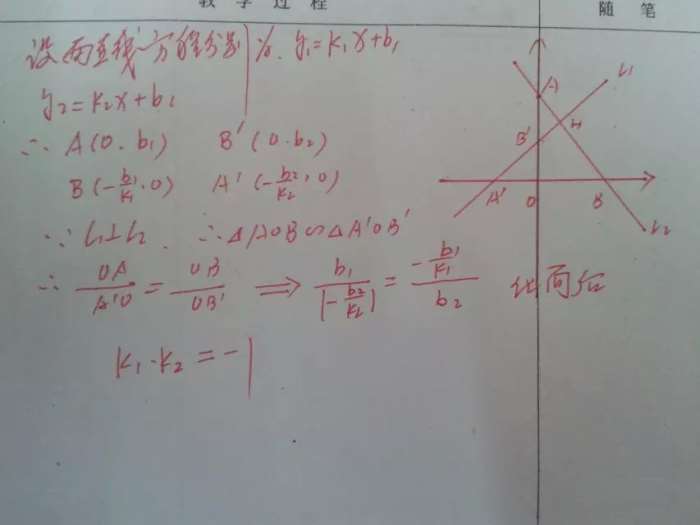 教 学 过 程
随 笔
设两直线方程分别为. y₁=k₁x+b₁
y₂=k₂x+b₂
∴ A(0.b₁) B'(0.b₂)
B(-b₁/k₁.0) A'(-b₂/k₂,0)
∵ L₁⊥L₂ ∴ △AOB∽△A'OB'
∴ OA/A'O = OB/OB' ⟹ b₁/|-b₂/k₂| = -b₁/k₁/b₂ 化简后
k₁·k₂=-1
L₁
A
H
B'
A'
O
B
L₂